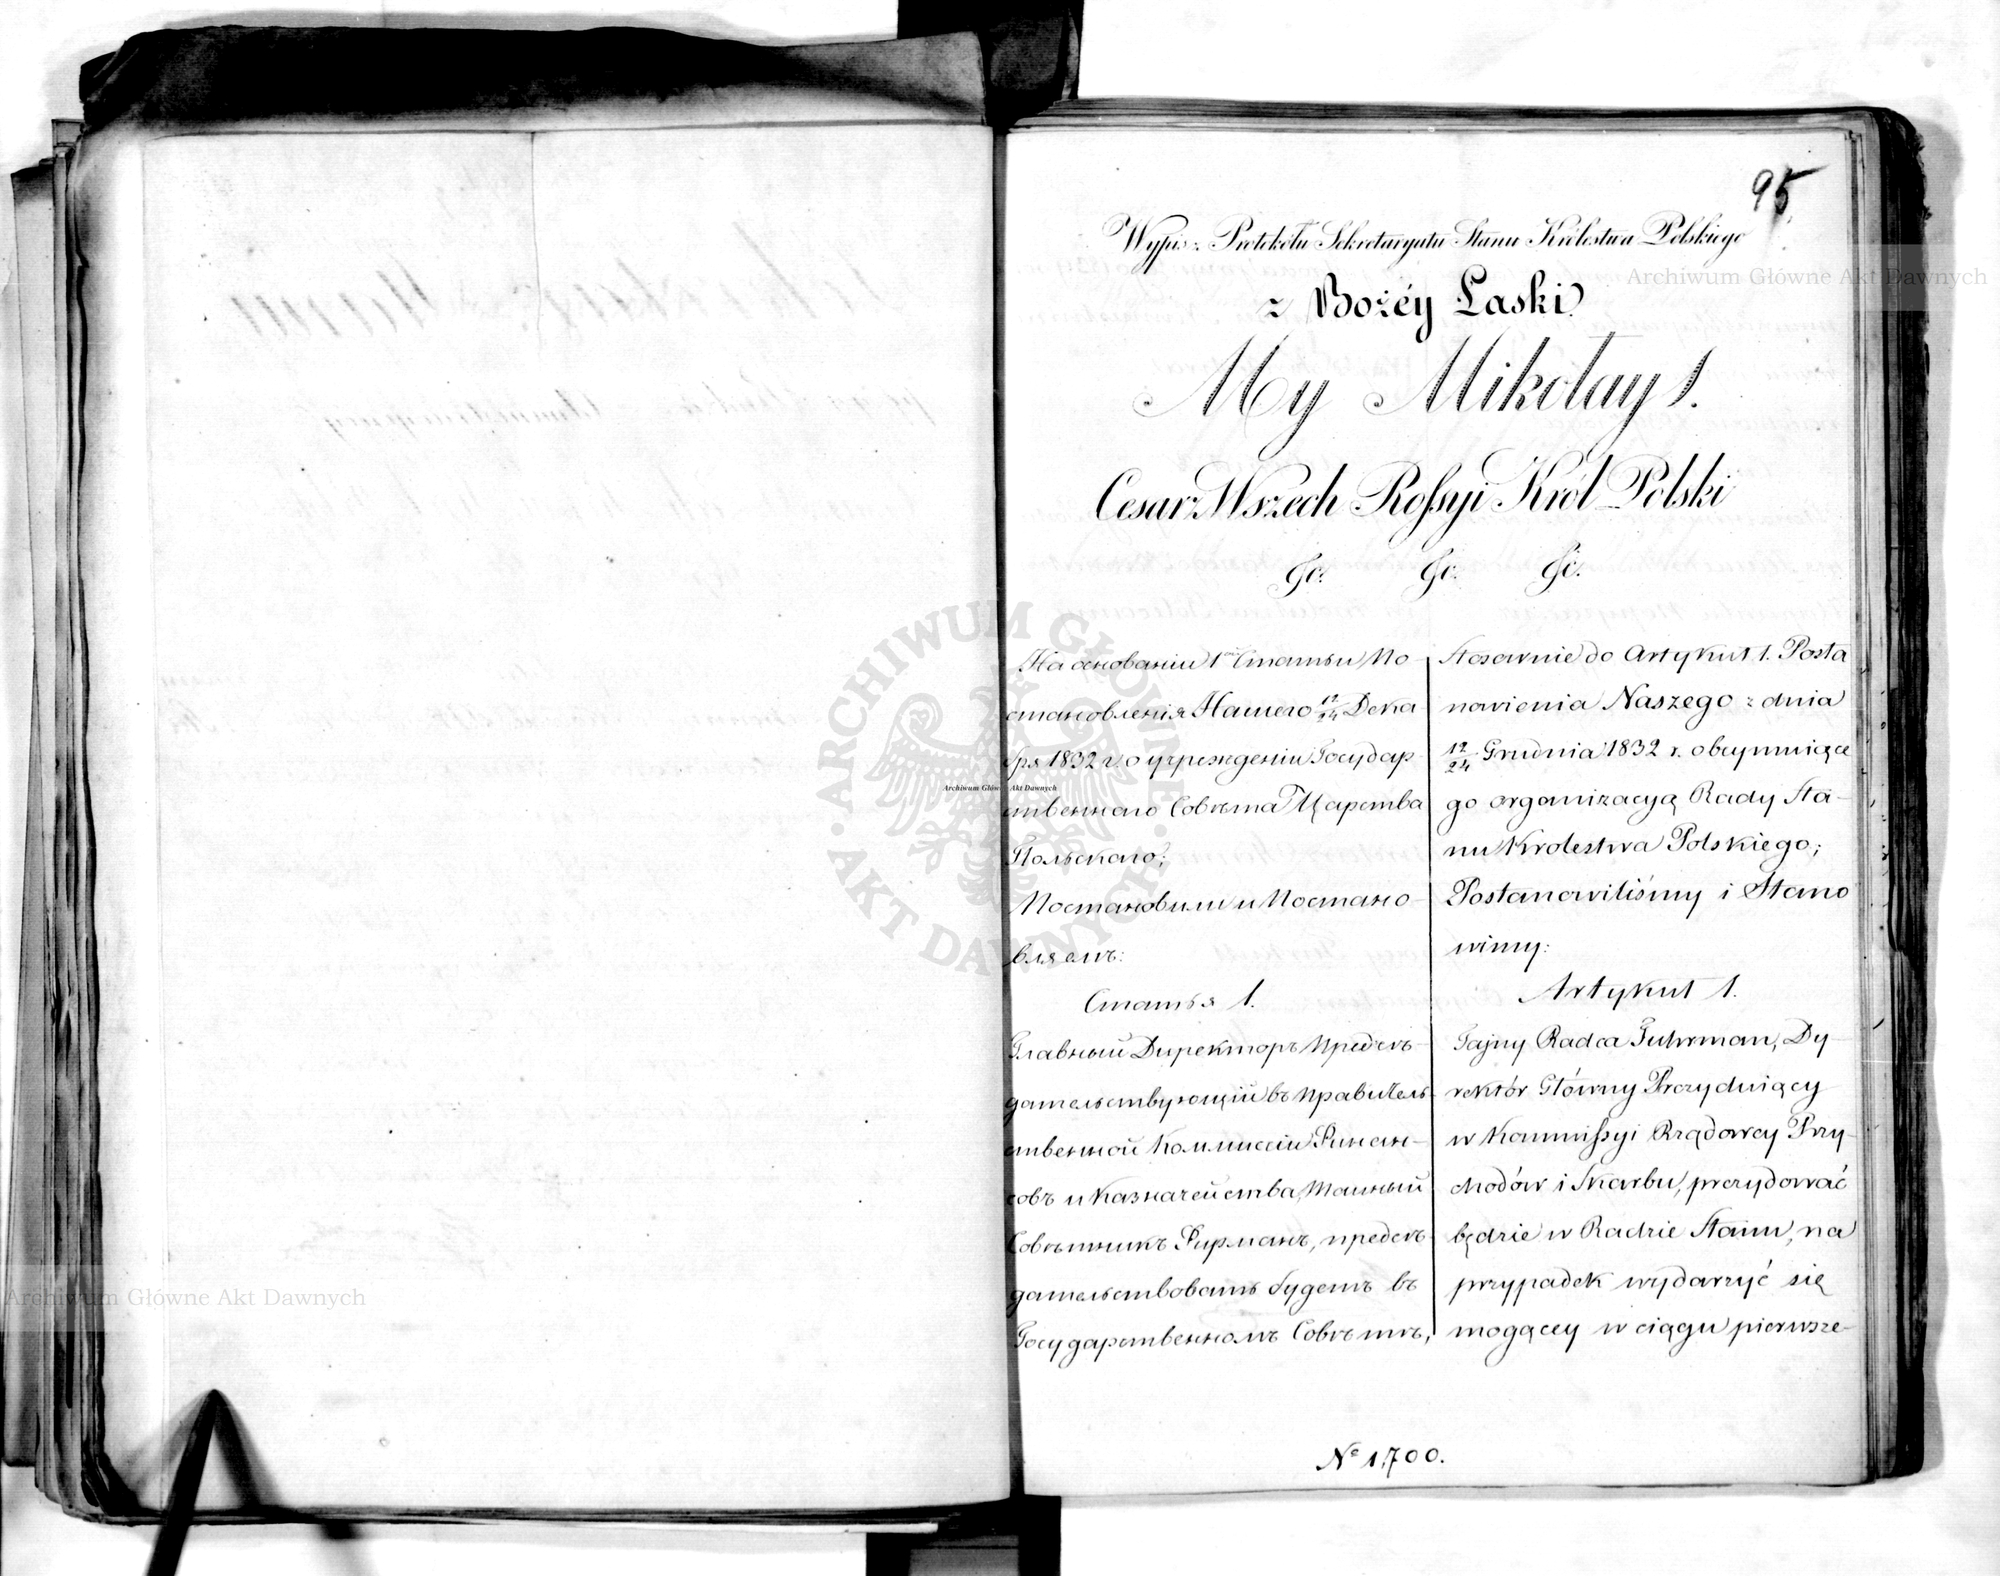 95
Wypis z Protokółu Sekretaryatu Stanu Królestwa Polskiego
z Bożéy Łaski
My Mikołay I.
Cesarz Wszech Rossyi Król Polski
&c. &c. &c.
На основаніи 1ой Статьи По-
становленія Нашего 12/24 Дека-
бря 1832 г. о учрежденіи Государ-
ственнаго Совѣта Царства
Польскаго;
Постановили и Постано-
вляемъ:
Статья 1.
Главный Директоръ Предсѣ-
дательствующій въ Правитель-
ственной Коммиссіи Финан-
совъ и Казначейства, Тайный
Совѣтникъ Фурманъ, предсѣ-
дательствовать будетъ въ
Государственномъ Совѣтѣ,
Stosownie do Artykuł 1. Posta
nowienia Naszego z dnia
12/24 Grudnia 1832 r. obeymuiące
go organizacyą Rady Sta-
nu Krolestwa Polskiego;
Postanowiliśmy i Stano
wimy:
Artykuł 1.
Tajny Radca Fuhrman, Dy-
rektór Główny Prezyduiący
w Kommissyi Rządowey Przy-
chodów i Skarbu, prezydować
będzie w Radzie Stanu, na
przypadek wydarzyć się
mogącey w ciągu pierwsze-
No 1,700.
Archiwum Główne Akt Dawnych
Archiwum Główne Akt Dawnych
Archiwum Główne Akt Dawnych
ARCHIWUM GŁÓWNE
AKT DAWNYCH